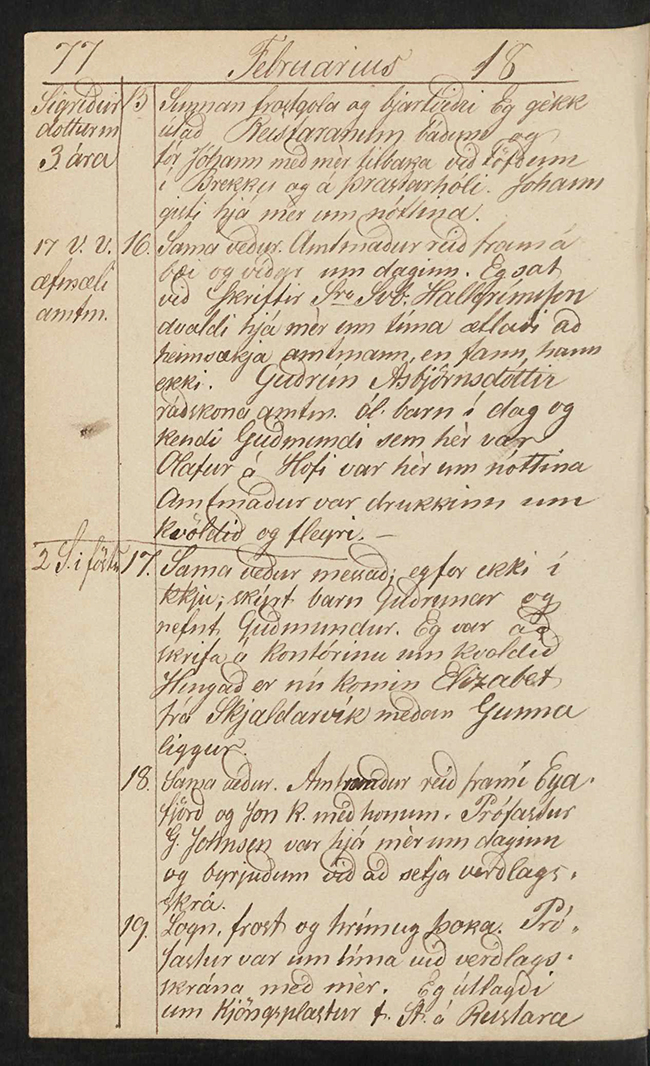 77 Februarius 18
Sigrídur
dotturin
3 ára
15 Sunnan frostgola og bjartvidri Eg gékk
útad Reistaranum bádum og
fór Jóhann med mér tilbaka vid töfdum
í Brekku og á þrastarhóli. Johann
gisti hjá mér um nóttina.
17 V. V.
æfmæli
amtm.
16. Sama vedur. Amtmadur reid fram á
bæi og vídar um daginn. Eg sat
vid skriftir Sra Svb: Hallgrímsson
dvaldi hjá mèr um tíma ætladi ad
heimsækja amtmann, en fann hann
ekki. Gudrún Asbjörnsdottir
rádskona amtm. ól barn í dag og
kendi Gudmundi sem hér var
Olafur á Hofi var hèr um nóttina
Amtmadur var drukkinn um
kvöldid og fleyri. –
2 S. i föstu 17. Sama vedur messad; eg for ekki í
kkju; skírt barn Gudrunar og
nefnt Gudmundur. Eg var ad
skrifa á kontórinu um kvoldid
Hingad er nú komin Elizabet
frá Skjaldarvík medan Gunna
liggur.
18. Sama vedur. Amtmadur reid frami Eya-
fjörd og Jon K. med honum. Prófastur
G. Johnsen var hjá mèr um daginn
og byrjudum vid ad setja verdlags-
skrá.
19. Logn, frost og hrímug þoka. Pró-
fastur var um tíma vid verdlags-
skrána med mér. Eg útlagdi
um Kjöngsplastur f. St. á Reistara